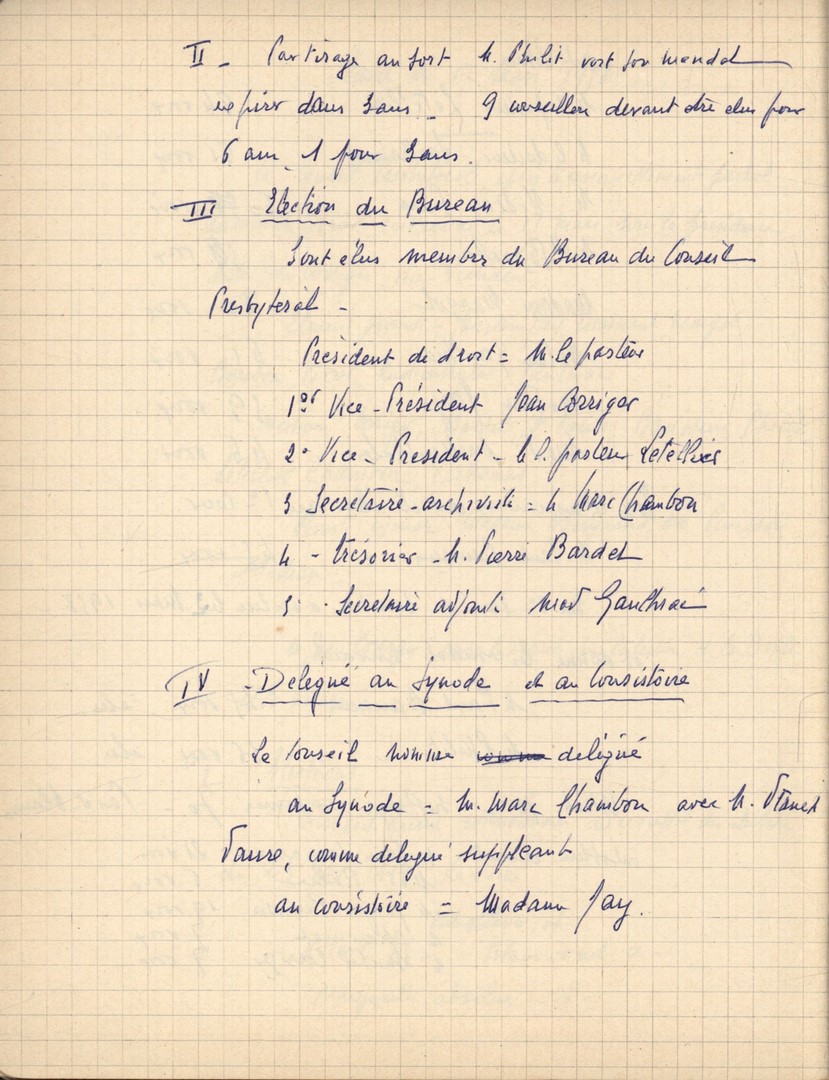 II - Par tirage au sort M. Philit voit son mandat
expirer dans 3 ans. 9 conseillers devant être élus pour
6 ans, 1 pour 3 ans.
III Election du Bureau
Sont élus membres du Bureau du Conseil
Presbytéral -
Président de droit = M. le pasteur
1er Vice-Président Jean Corriger
2° Vice-Président - M. le pasteur Letellier
3 Secrétaire-archiviste = M. Marc Chambon
4 - trésorier - M. Pierre Bardet
5 - Secrétaire adjoint Mad
IV - Délégué au Synode et au Consistoire
Le Conseil nomme délégué
au Synode = M. Marc Chambon avec M.
Faure, comme délégué suppléant
au consistoire = Madame Jay.